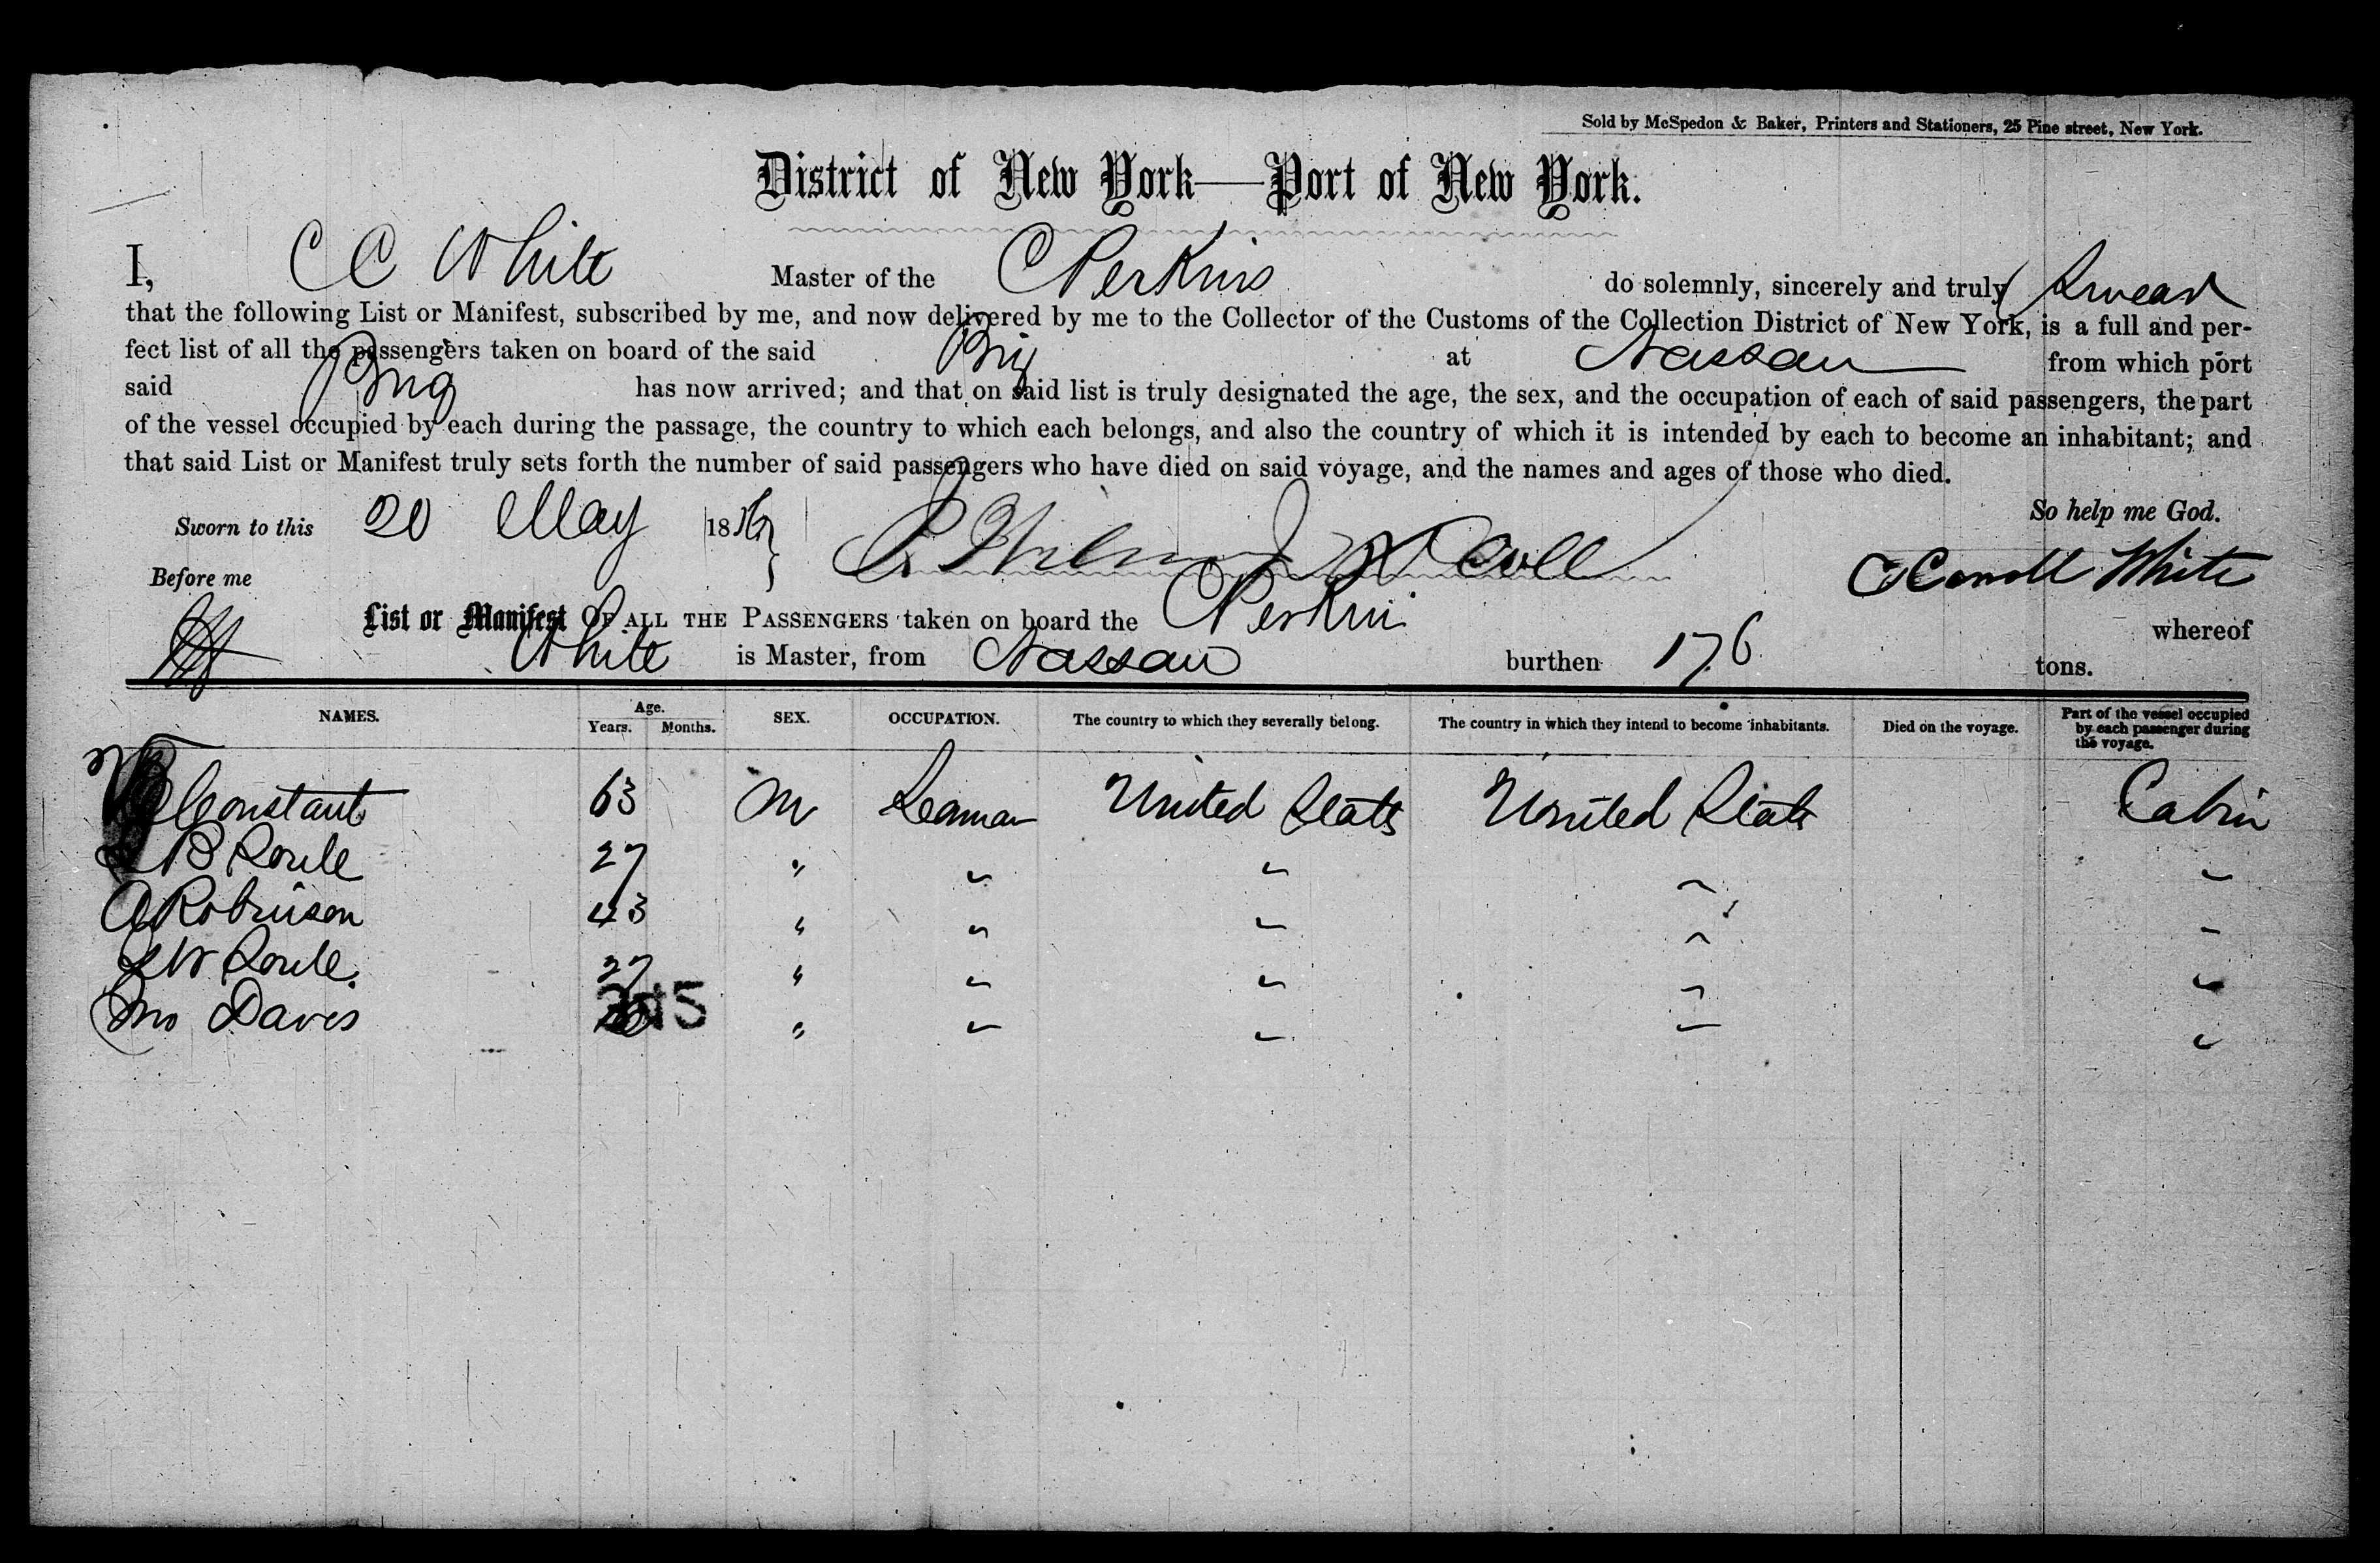 Sold by McSpedon & Baker, Printers and Stationers, 25 Pine street, New York.
District of New York—Port of New York.
I, C C White Master of the C Perkins do solemnly, sincerely and truly Swear
that the following List or Manifest, subscribed by me, and now delivered by me to the Collector of the Customs of the Collection District of New York, is a full and per-
fect list of all the passengers taken on board of the said Brig at Nassau from which port
said Brig has now arrived; and that on said list is truly designated the age, the sex, and the occupation of each of said passengers, the part
of the vessel occupied by each during the passage, the country to which each belongs, and also the country of which it is intended by each to become an inhabitant; and
that said List or Manifest truly sets forth the number of said passengers who have died on said voyage, and the names and ages of those who died.
So help me God.
Sworn to this 20 May 1856
Before me White
List or Manifest OF ALL THE PASSENGERS taken on board the C Perkins whereof
White is Master, from Nassau burthen 176 tons.
NAMES. Age. Years. Months. SEX. OCCUPATION. The country to which they severally belong. The country in which they intend to become inhabitants. Died on the voyage. Part of the vessel occupied by each passenger during the voyage.
Constant 63 M Seaman United States United States Cabin
B 27 " " " " "
A Robinson 43 " " " " "
27 " " " " "
Jno Davis " " " " "